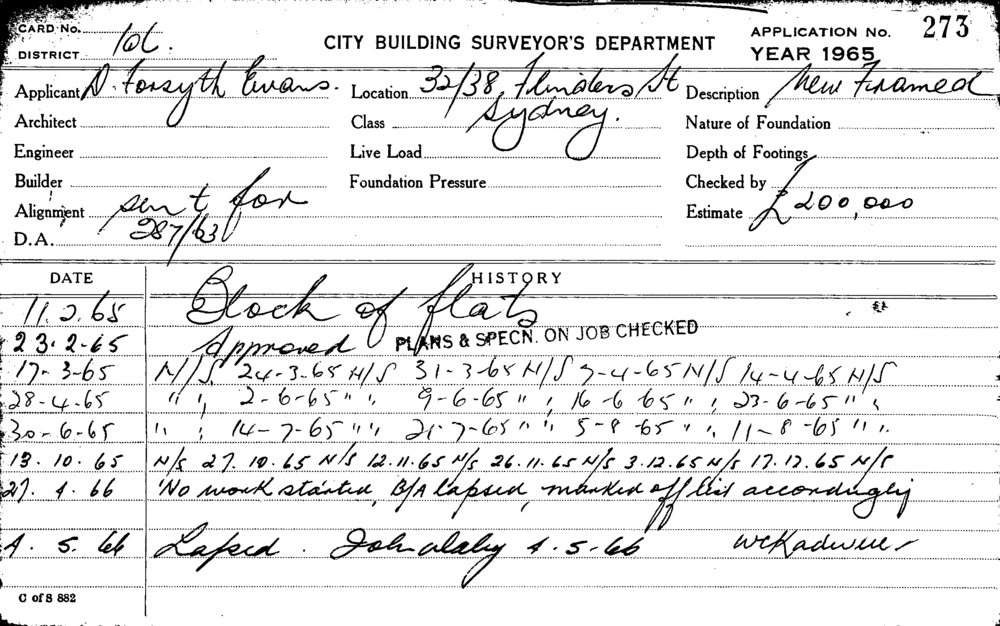 CARD No. 
CITY BUILDING SURVEYOR'S DEPARTMENT
APPLICATION No. 273
DISTRICT
YEAR 1965
Applicant D. Forsyth Evans. Location 32/38, Flinders St Description New Framed
Architect Class Sydney. Nature of Foundation
Engineer Live Load Depth of Footings
Builder Foundation Pressure Checked by
Alignment sent for Estimate £200,000
D.A. 287/63
DATE HISTORY
11.2.65 Block of flats
23.2.65 Approved PLANS & SPECN. ON JOB CHECKED
17-3-65 N/S. 24-3.65 N/S 31-3-65 N/S 7-4-65 N/S 14-4-65 N/S
28-4.65 " , 2-6-65 " , 9-6-65 " , 16-6 65 " , 23-6-65 " ,
30-6-65 " , 14-7-65 " , 21-7-65 " , 5-8-65 " , 11-8-65 " ,
13.10.65 N/S 27.10.65 N/S 12.11.65 N/S 26.11.65 N/S 3.12.65 N/S 17.12.65 N/S
27.4.66 No work started, B/A lapsed, marked off list accordingly
4.5.66 Lapsed. 4.5.66
C of S 882